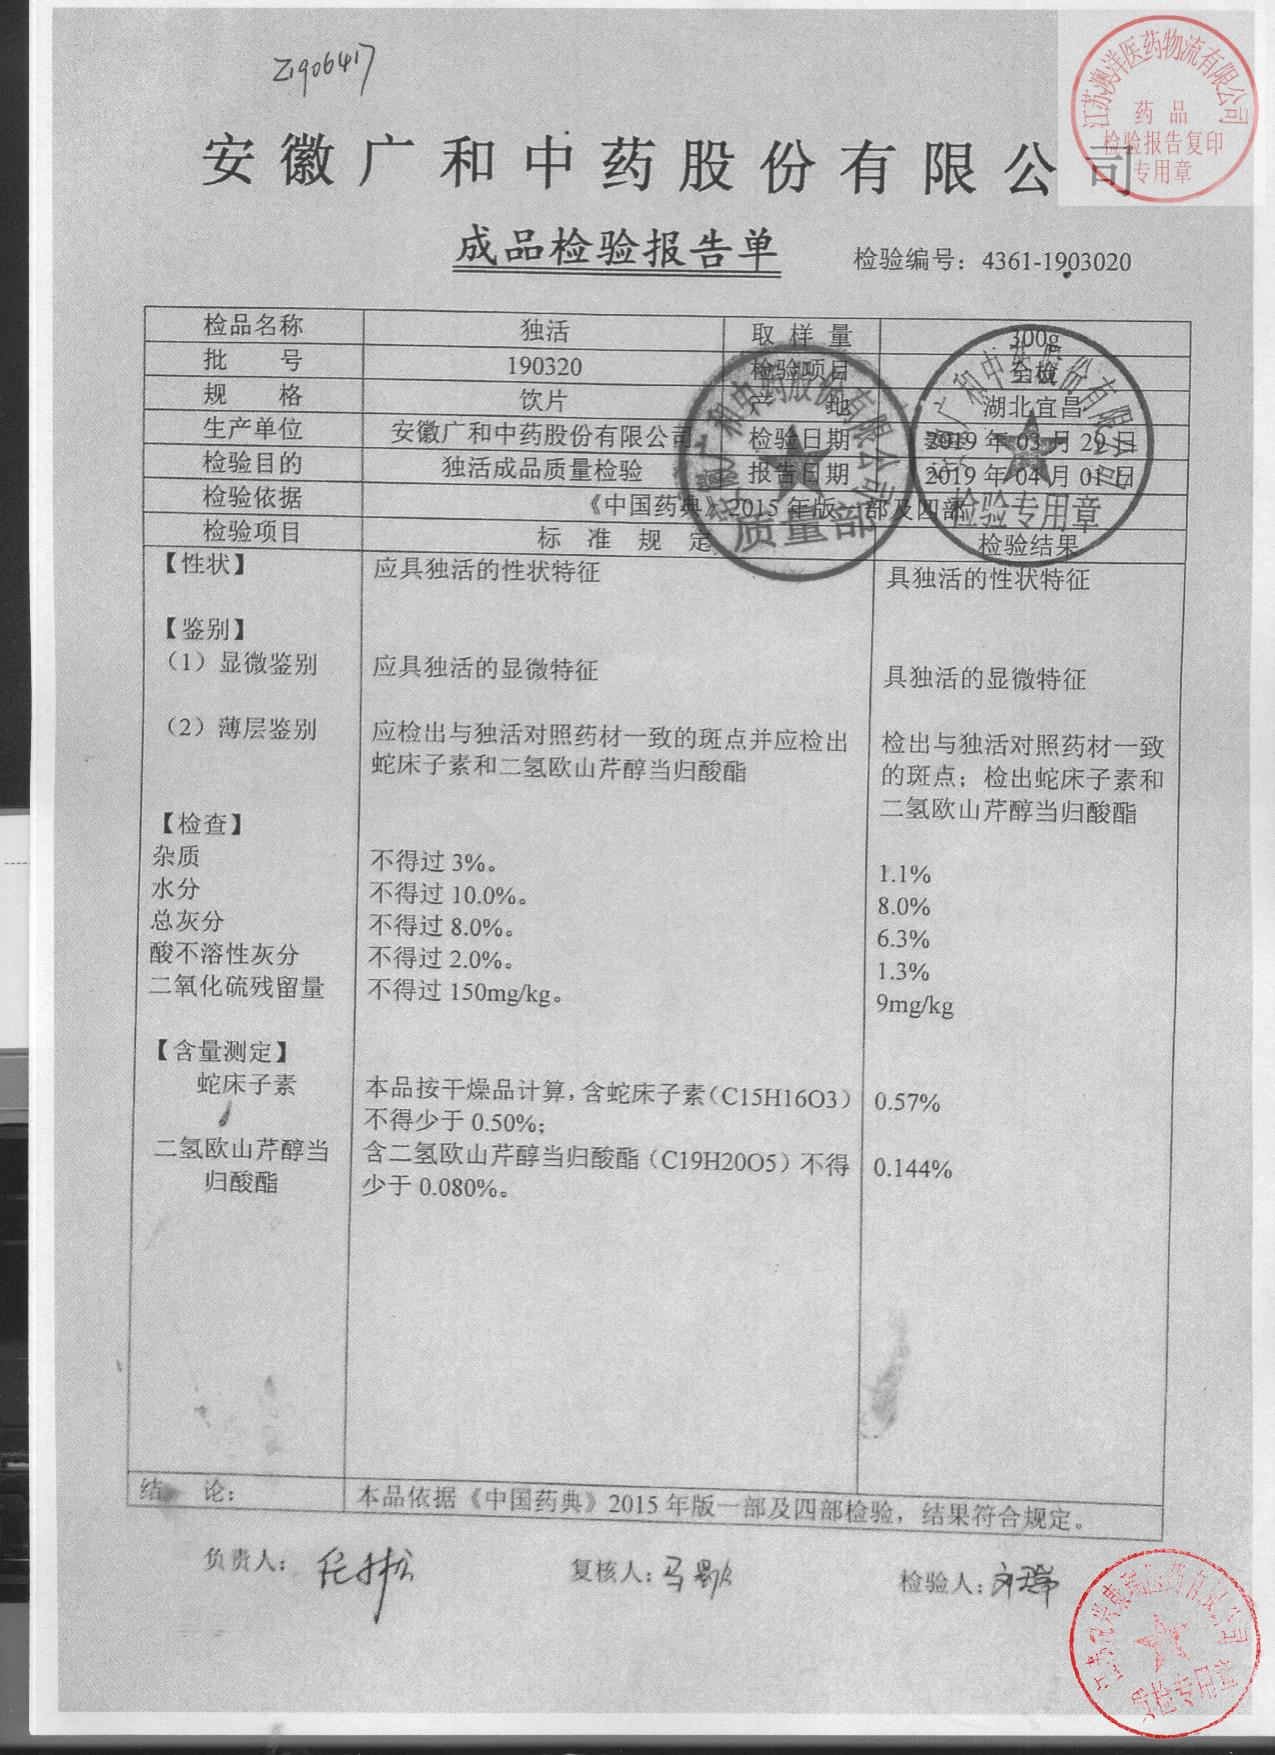 Z1906417
江苏澳洋医药物流有限公司
药品
检验报告复印
专用章
安徽广和中药股份有限公司
成品检验报告单
检验编号：4361-1903020
检品名称 独活 取样量 300g
批号 190320 检验项目 全检
规格 饮片 产地 湖北宜昌
生产单位 安徽广和中药股份有限公司 检验日期 2019年03月29日
检验目的 独活成品质量检验 报告日期 2019年04月01日
检验依据 《中国药典》2015年版一部及四部
检验项目 标准规定 检验结果
安徽广和中药股份有限公司
质量部
安徽广和中药股份有限公司
检验专用章
【性状】 应具独活的性状特征 具独活的性状特征
【鉴别】
（1）显微鉴别 应具独活的显微特征 具独活的显微特征
（2）薄层鉴别 应检出与独活对照药材一致的斑点并应检出 检出与独活对照药材一致
蛇床子素和二氢欧山芹醇当归酸酯 的斑点；检出蛇床子素和
二氢欧山芹醇当归酸酯
【检查】
杂质 不得过3%。 1.1%
水分 不得过10.0%。 8.0%
总灰分 不得过8.0%。 6.3%
酸不溶性灰分 不得过2.0%。 1.3%
二氧化硫残留量 不得过150mg/kg。 9mg/kg
【含量测定】
蛇床子素 本品按干燥品计算，含蛇床子素（C15H16O3） 0.57%
不得少于0.50%；
二氢欧山芹醇当 含二氢欧山芹醇当归酸酯（C19H20O5）不得 0.144%
归酸酯 少于0.080%。
结论： 本品依据《中国药典》2015年版一部及四部检验，结果符合规定。
负责人： 复核人：马 检验人：
质检专用章